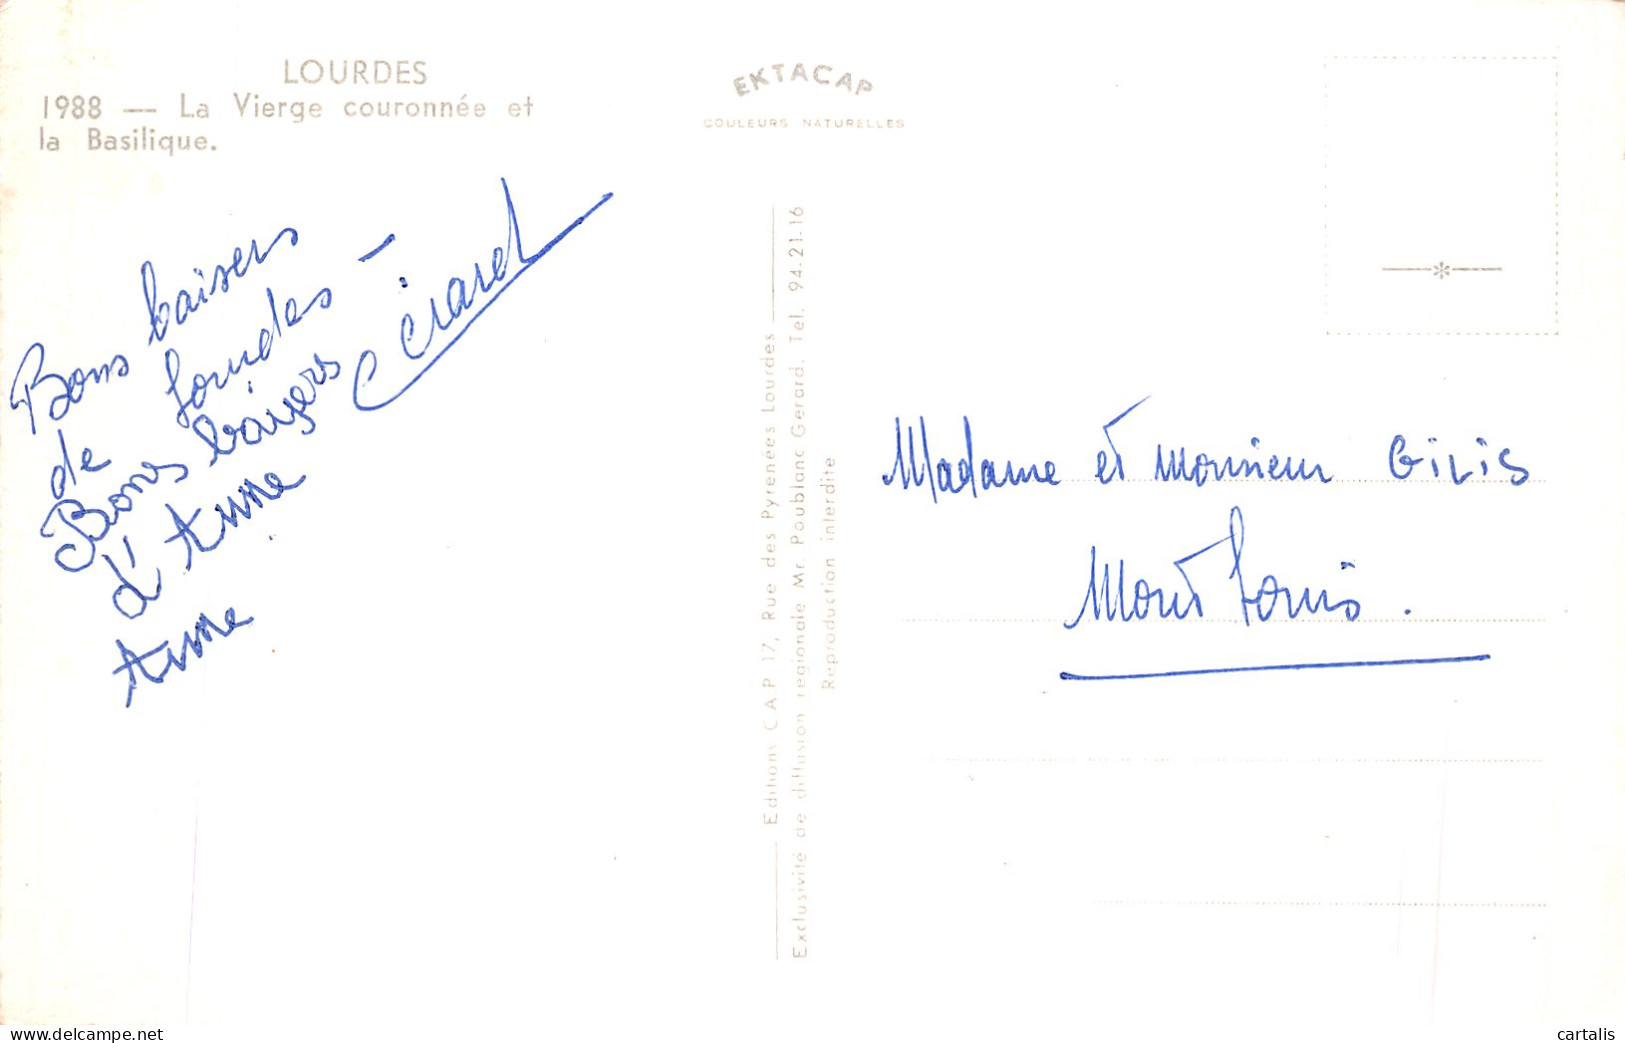 LOURDES
1988 — La Vierge couronnée et
la Basilique.
EKTACAP
COULEURS NATURELLES
Bons baisers
de Lourdes –
Gérard
Bons baisers
d'Anne
Anne
Editions C A P 17, Rue des Pyrenées Lourdes
Exclusivité de diffusion regionale Mr. Poublanc Gerard. Tel. 94-21-16
Reproduction interdite
Madame et Monsieur GILIS
Mont Louis.
www.delcampe.net
cartalis